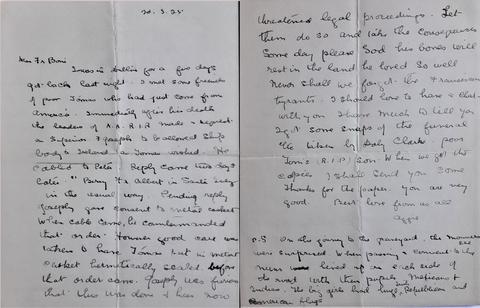 20.3.25
Dear Fr Boni
I was in Dublin for a few days
got back last night. I met some friends
of poor Tomas who had just come from
America. Immediately after his death
the leaders of A.A.R.I.R made a request
a Superior & people to allowed ship
body to Ireland as Tomas wished. He
cabled to Peter. Reply came two days
later "Bury Fr Albert in Santa Inez
in the usual way". Pending reply
Joseph gave consent to metal casket
When cable came, he countermanded
that order. However good care was
taken to have Tomas put in metal
casket hermetically sealed before
that order came. Joseph was furious
that this was done & has now
threatened legal proceedings. Let
them do so and take the consequences
Some day please God his bones will
rest in the land he loved so well
Never shall we forget the Franciscan
tyrants. I should love to have a chat
with you I have much to tell you
I got some snaps of the funeral
taken by Clark
Tom's (R.I.P) son. When we get the
copies I shall send you some
Thanks for the paper. You are very
good. Best love from us all
P.S On the journey to the graveyard, the mourners
were surprised. When passing a convent the
nuns lined up on each side of
the road with their pupils
The big girls had huge Republican and
American flags